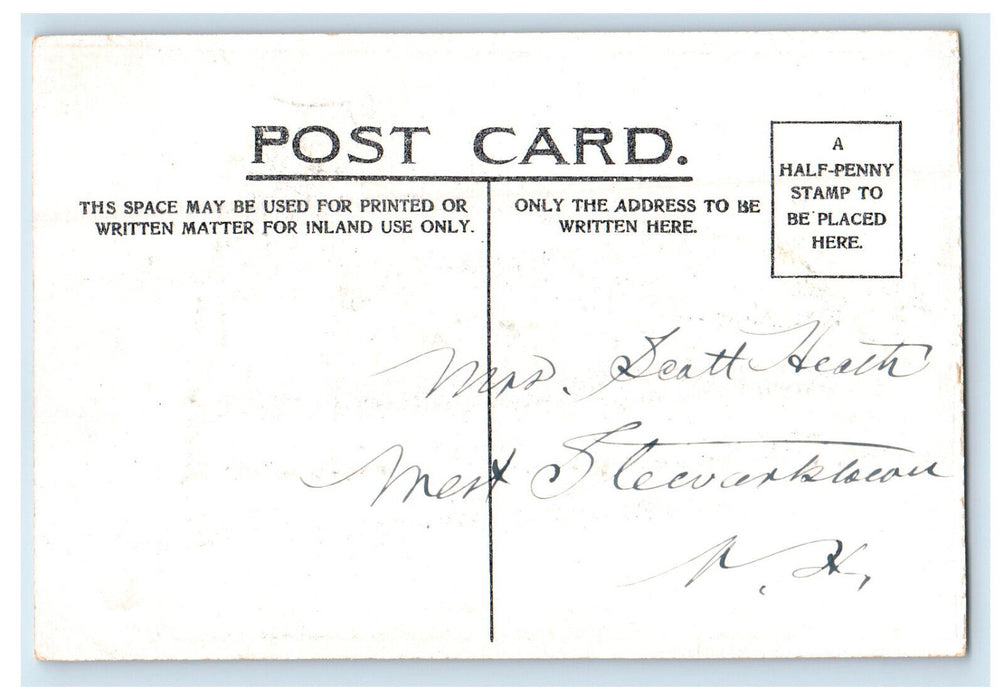 POST CARD.
THS SPACE MAY BE USED FOR PRINTED OR
WRITTEN MATTER FOR INLAND USE ONLY.
ONLY THE ADDRESS TO BE
WRITTEN HERE.
A
HALF-PENNY
STAMP TO
BE PLACED
HERE.
Mrs. Scott Heath
West Stewartstown
N. H.